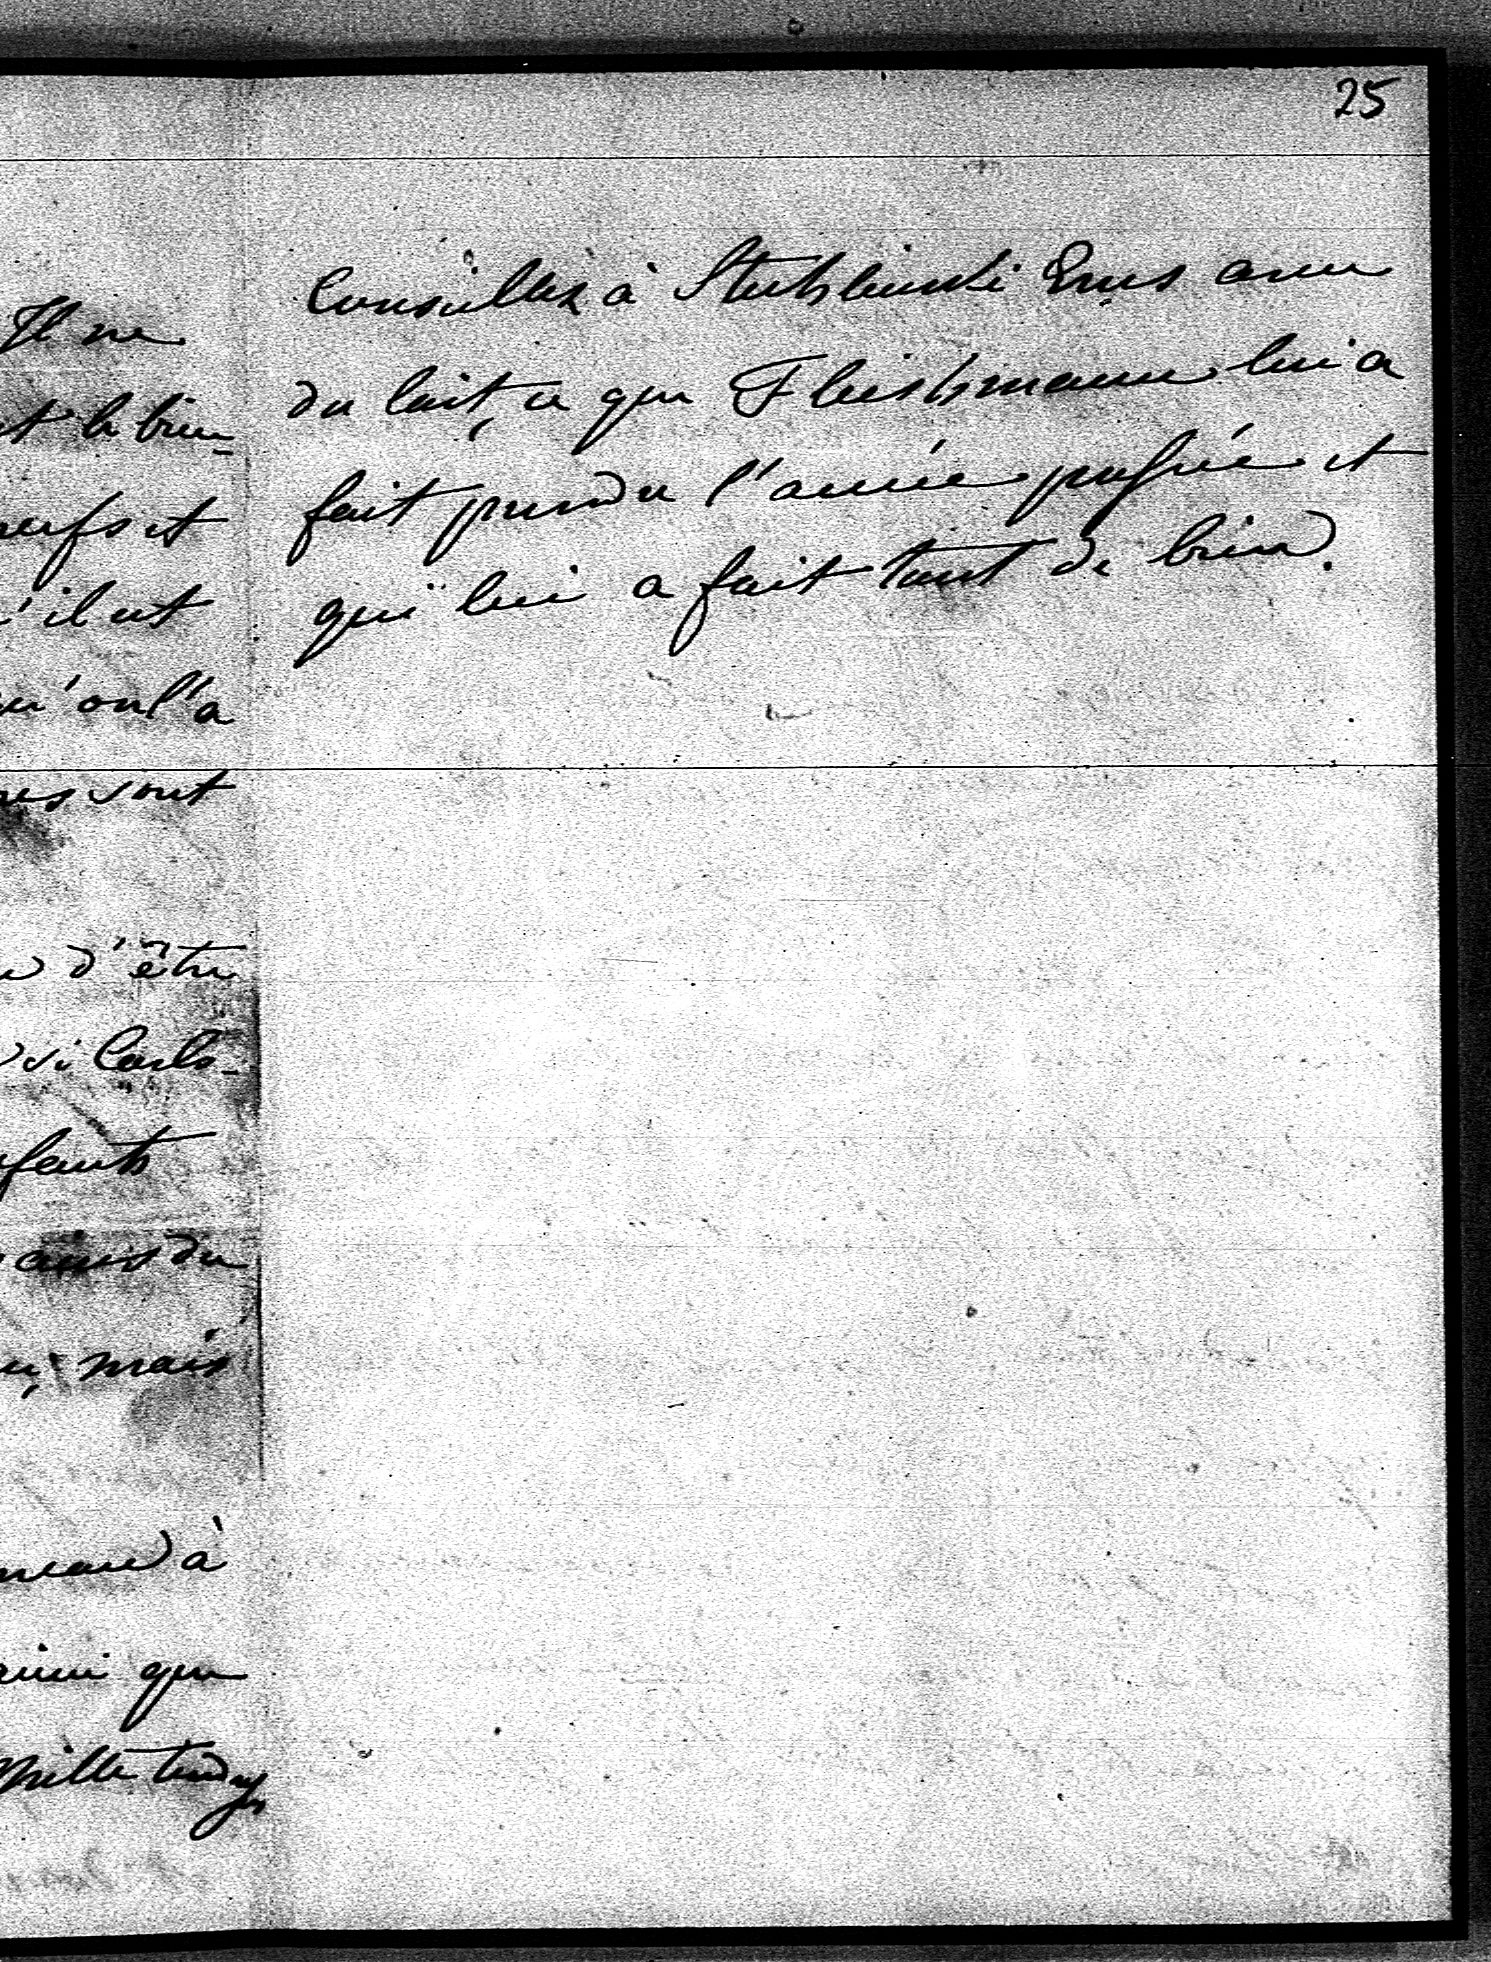 25
Il ne
et le bien-
nerfs et
'il est
qu'on l'a
nes sont
d'être
si Carls-
nfants
du
mais
à
ainsi que
Mille tendres
Conseillez à Emus avec
du lait, ce que Fleishmann lui a
fait prendre l'année passée et
qui lui a fait tant de bien.